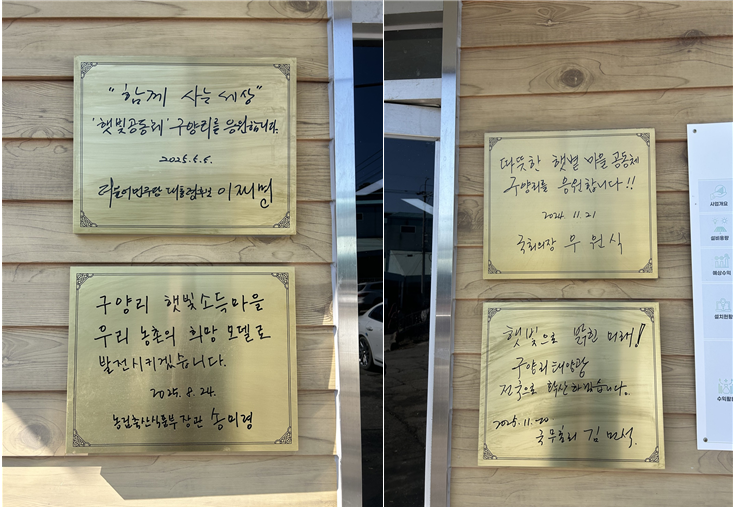 "함께 사는 세상"
'햇빛공동체' 구양리를 응원합니다.
2025.5.6.
더불어민주당 대통령후보 이재명
구양리 햇빛소득마을
우리 농촌의 희망 모델로
발전시키겠습니다.
2025. 8. 24.
농림축산식품부 장관 송미령
따뜻한 햇볕 마을 공동체
구양리를 응원합니다!!
2024. 11. 21
국회의장 우원식
햇빛으로 밝힌 미래!
구양리 태양광
전국으로 확산하겠습니다.
2025. 11. 20
국무총리 김민석.
사업개요
설비용량
예상수익
설치현황
수익활